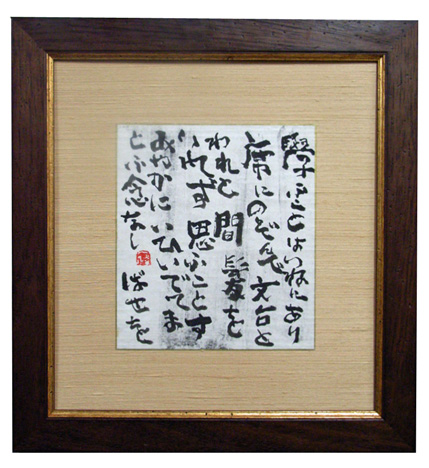 學ぶことはつねにあり
席にのぞんで文台と
われと間髪を
いれず思ふことす
みやかにいひいでてま
よふ念なし